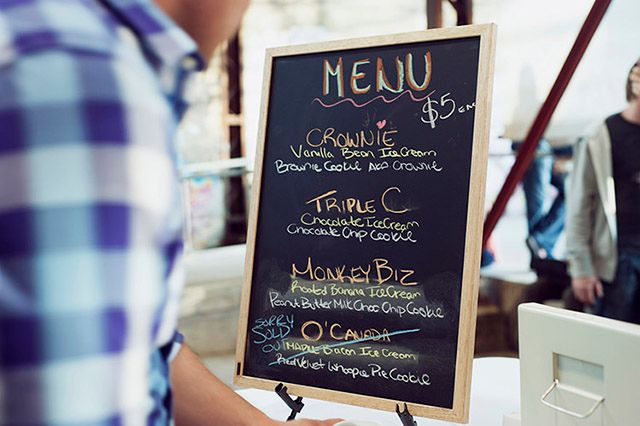 MENU
$5 EACH
CROWNIE
Vanilla Bean IceCream
Brownie Cookie AKA Crownie
TRIPLE C
Chocolate IceCream
Chocolate Chip Cookie
MONKEY BIZ
Roasted Banana IceCream
Peanut Butter Milk Choc Chip Cookie
SORRY SOLD OUT
O'CANADA
Maple Bacon Ice Cream
Red Velvet Whoopie Pie Cookie